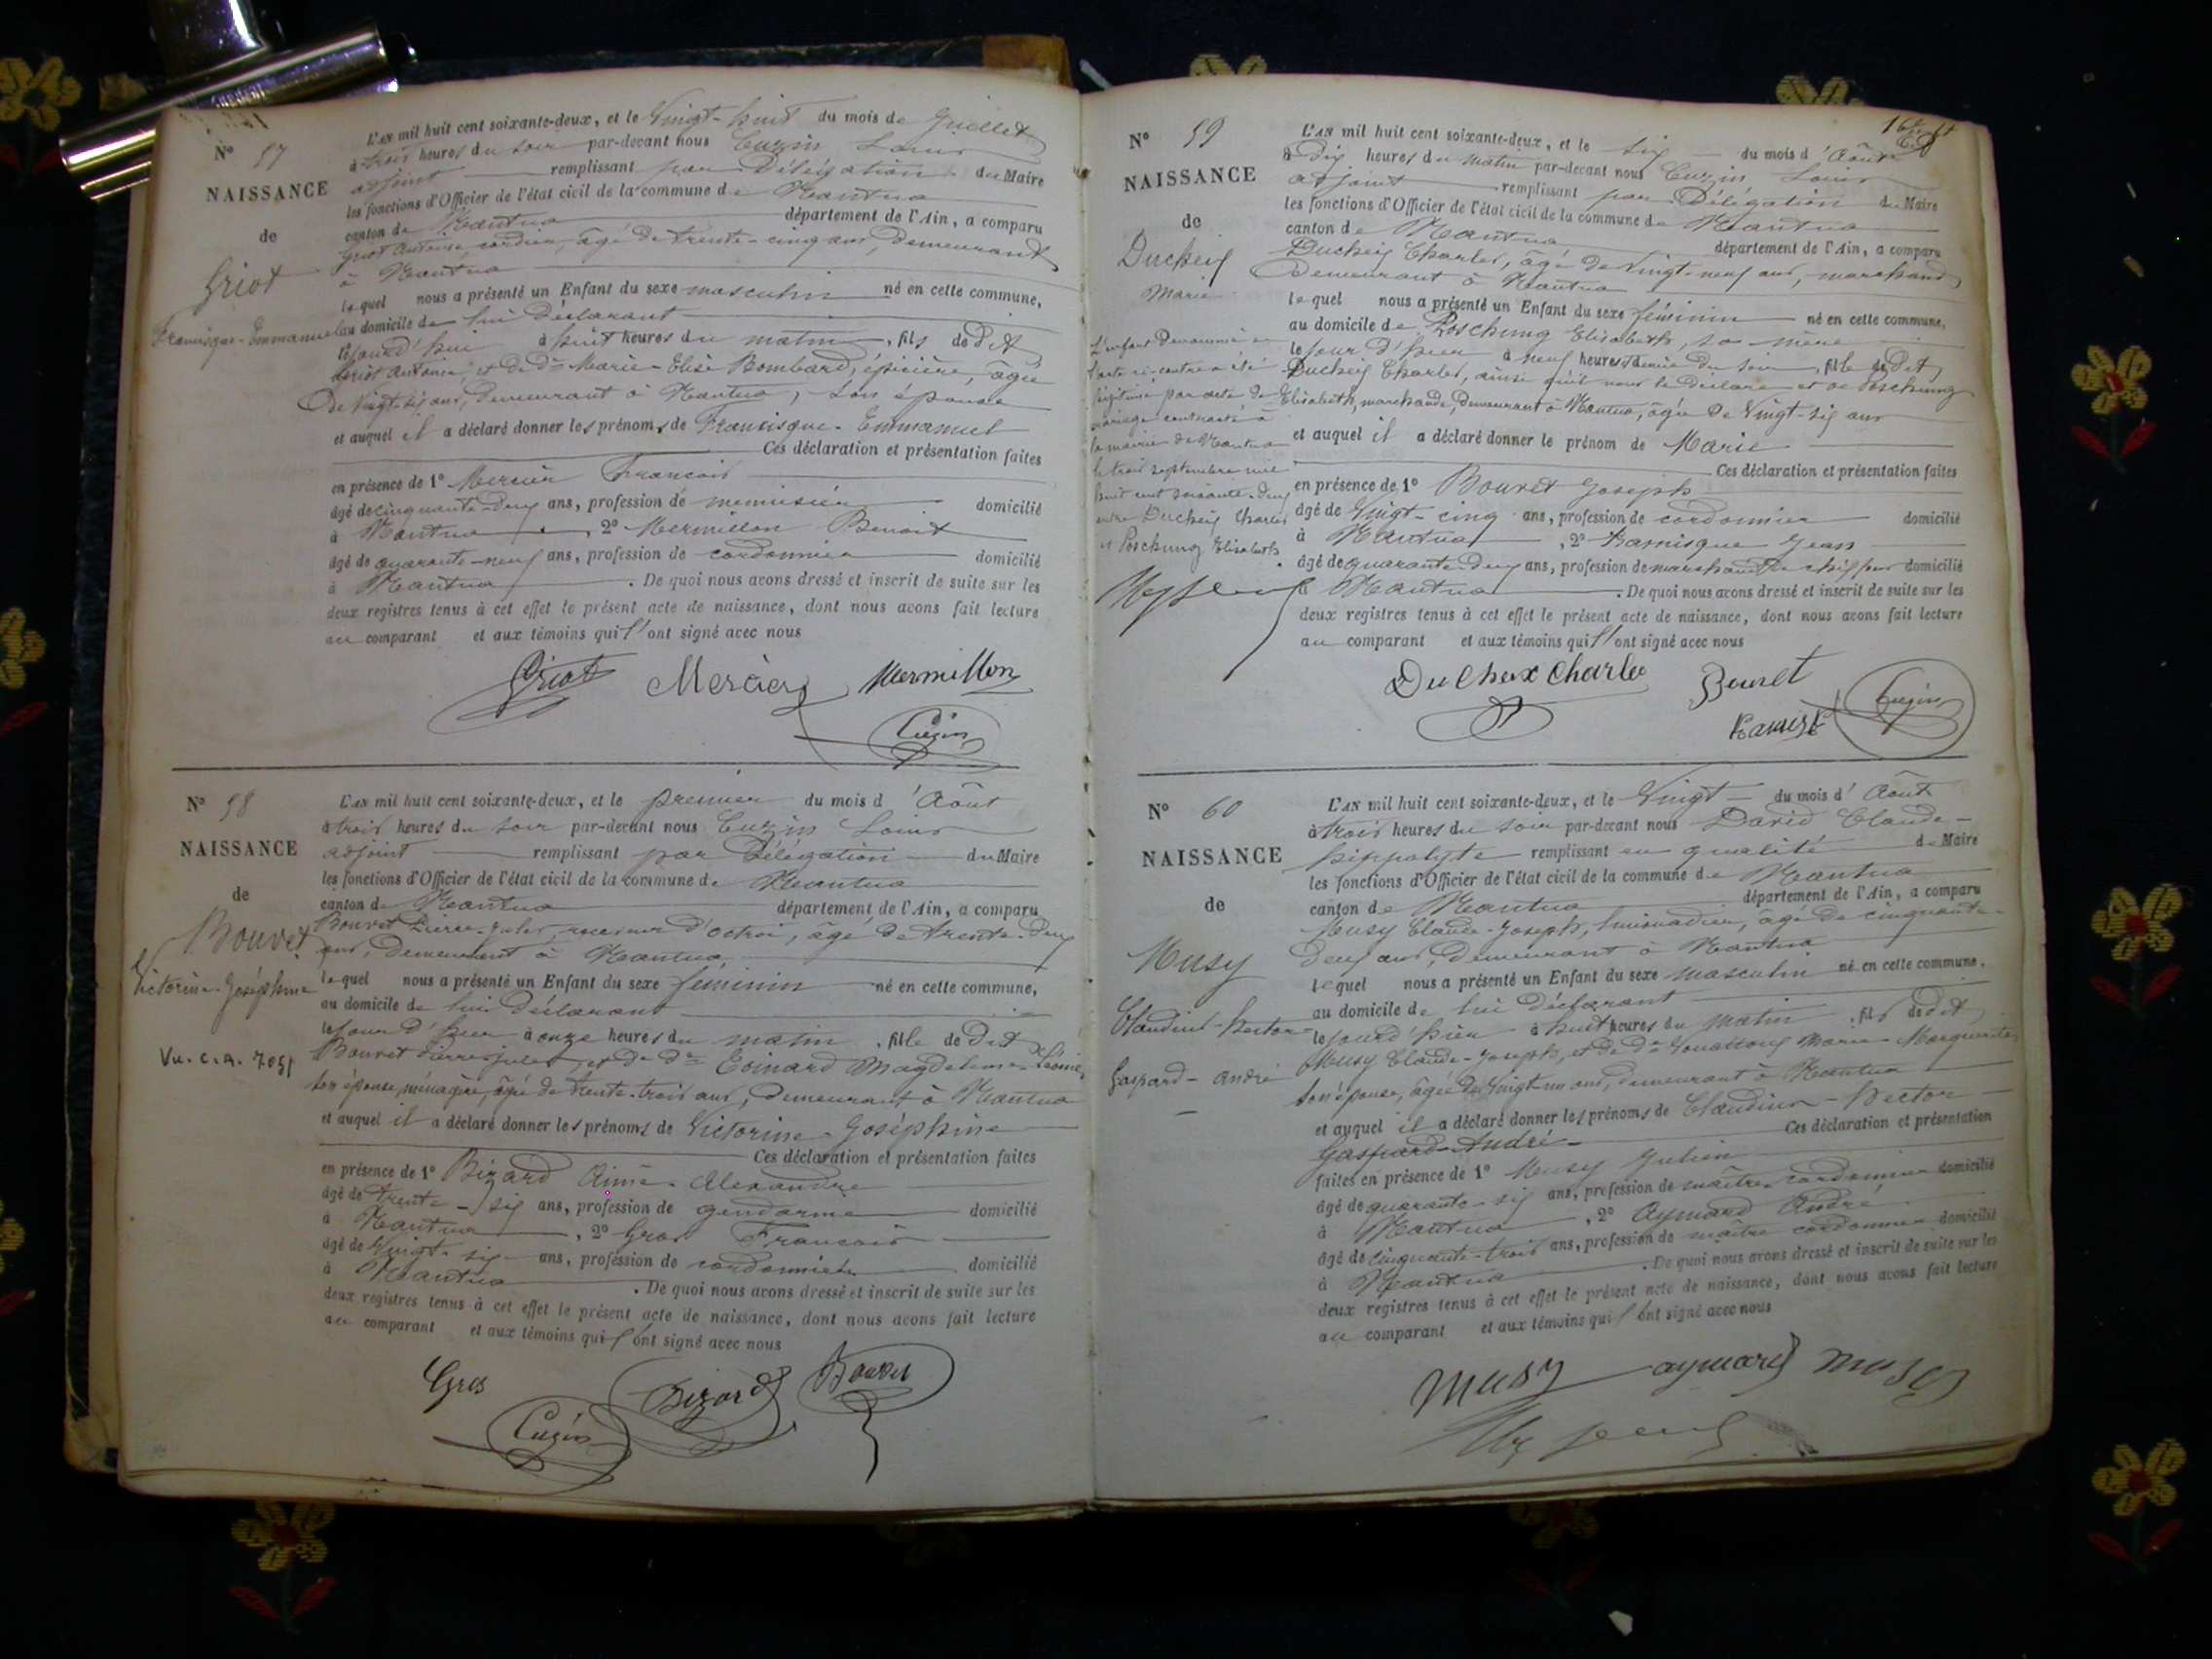 N° 57
NAISSANCE
de
Griot
Francisque-Emmanuel
L'AN mil huit cent soixante-deux, et le Vingt-huit du mois de Juillet
à trois heures du soir par-devant nous Cuzin Louis
adjoint remplissant par Délégation du Maire
les fonctions d'Officier de l'état civil de la commune de Nantua
canton de Nantua département de l'Ain, a comparu
Griot Antoine, cordier, âgé de trente-cinq ans, demeurant
à Nantua
lequel nous a présenté un Enfant du sexe masculin né en cette commune,
au domicile de lui Déclarant
cejourd'hui à huit heures du matin, fils de Dit
Griot Antoine, et de De Marie-Elise Bombard, épicière, âgée
de Vingt-six ans, demeurant à Nantua, son épouse
et auquel il a déclaré donner les prénoms de Francisque-Emmanuel
Ces déclaration et présentation faites
en présence de 1° Mercier François
âgé de cinquante-deux ans, profession de menuisier domicilié
à Nantua, 2° Mermillon Benoit
âgé de quarante-neuf ans, profession de cordonnier domicilié
à Nantua. De quoi nous avons dressé et inscrit de suite sur les
deux registres tenus à cet effet le présent acte de naissance, dont nous avons fait lecture
au comparant et aux témoins qui l'ont signé avec nous
Griot Mercier Mermillon
Cuzin
N° 58
NAISSANCE
de
Bouvet
Victorine-Joséphine
Vu. c.a.
L'AN mil huit cent soixante-deux, et le premier du mois d'Août
à trois heures du soir par-devant nous Cuzin Louis
adjoint remplissant par Délégation du Maire
les fonctions d'Officier de l'état civil de la commune de Nantua
canton de Nantua département de l'Ain, a comparu
Bouvet Pierre-Jules, receveur d'octroi, âgé de trente-deux
ans, demeurant à Nantua,
lequel nous a présenté un Enfant du sexe féminin né en cette commune,
au domicile de lui Déclarant
le Jour d'hier à onze heures du matin, fille de Dit
Bouvet Pierre-Jules, et de De Coinard Magdeleine-Léonie,
son épouse, ménagère, âgée de trente-trois ans, demeurant à Nantua
et auquel il a déclaré donner les prénoms de Victorine-Joséphine
Ces déclaration et présentation faites
en présence de 1° Bizard Aimé-Alexandre
âgé de trente-six ans, profession de gendarme domicilié
à Nantua, 2° Gros François
âgé de Vingt-six ans, profession de cordonnier domicilié
à Nantua. De quoi nous avons dressé et inscrit de suite sur les
deux registres tenus à cet effet le présent acte de naissance, dont nous avons fait lecture
au comparant et aux témoins qui l'ont signé avec nous
Gros Bizard Bouvet
Cuzin
N° 59
NAISSANCE
de
Ducheix
Marie
L'enfant dénommée en
l'acte ci-contre a été
légitimée par acte de
mariage contracté à
la mairie de Nantua
le trois septembre mil
huit cent soixante-deux
entre Ducheix Charles
et Poschung Elisabeth
L'AN mil huit cent soixante-deux, et le six du mois d'Août
à dix heures du matin par-devant nous Cuzin Louis
adjoint remplissant par Délégation du Maire
les fonctions d'Officier de l'état civil de la commune de Nantua
canton de Nantua département de l'Ain, a comparu
Ducheix Charles, âgé de Vingt-neuf ans, marchand
Demeurant à Nantua
lequel nous a présenté un Enfant du sexe féminin né en cette commune,
au domicile de Poschung Elisabeth, sa mère
le Jour d'hier à neuf heures demie du soir, fille de Dit
Ducheix Charles, ainsi qu'il nous le déclare et de Poschung
Elisabeth, marchande, demeurant à Nantua, âgée de Vingt-six ans
et auquel il a déclaré donner le prénom de Marie
Ces déclaration et présentation faites
en présence de 1° Bouvet Joseph
âgé de Vingt-cinq ans, profession de cordonnier domicilié
à Nantua, 2° Ramisque Jean
âgé de quarante-deux ans, profession de marchand de chiffons domicilié
à Nantua. De quoi nous avons dressé et inscrit de suite sur les
deux registres tenus à cet effet le présent acte de naissance, dont nous avons fait lecture
au comparant et aux témoins qui l'ont signé avec nous
Ducheix Charles Bouvet
Cuzin
N° 60
NAISSANCE
de
Musy
Claudius-Hector-
Gaspard-André
L'AN mil huit cent soixante-deux, et le Vingt du mois d'Août
à trois heures du soir par-devant nous David Claude-
hippolyte remplissant en qualité de Maire
les fonctions d'Officier de l'état civil de la commune de Nantua
canton de Nantua département de l'Ain, a comparu
Musy Claude-Joseph, limonadier, âgé de cinquante-
deux ans, demeurant à Nantua
lequel nous a présenté un Enfant du sexe masculin né en cette commune,
au domicile de lui Déclarant
le Jour d'hier à huit heures du matin, fils de dit
Musy Claude-Joseph, et de De Marie-Marguerite,
son épouse, âgée de Vingt un ans, demeurant à Nantua
et auquel il a déclaré donner les prénoms de Claudius-Hector
Gaspard-André- Ces déclaration et présentation
faites en présence de 1° Musy Julien
âgé de quarante-six ans, profession de maître cordonnier domicilié
à Nantua, 2° Aymard André
âgé de cinquante-trois ans, profession de maître cordonnier domicilié
à Nantua. De quoi nous avons dressé et inscrit de suite sur les
deux registres tenus à cet effet le présent acte de naissance, dont nous avons fait lecture
au comparant et aux témoins qui l'ont signé avec nous
Musy aymard musy